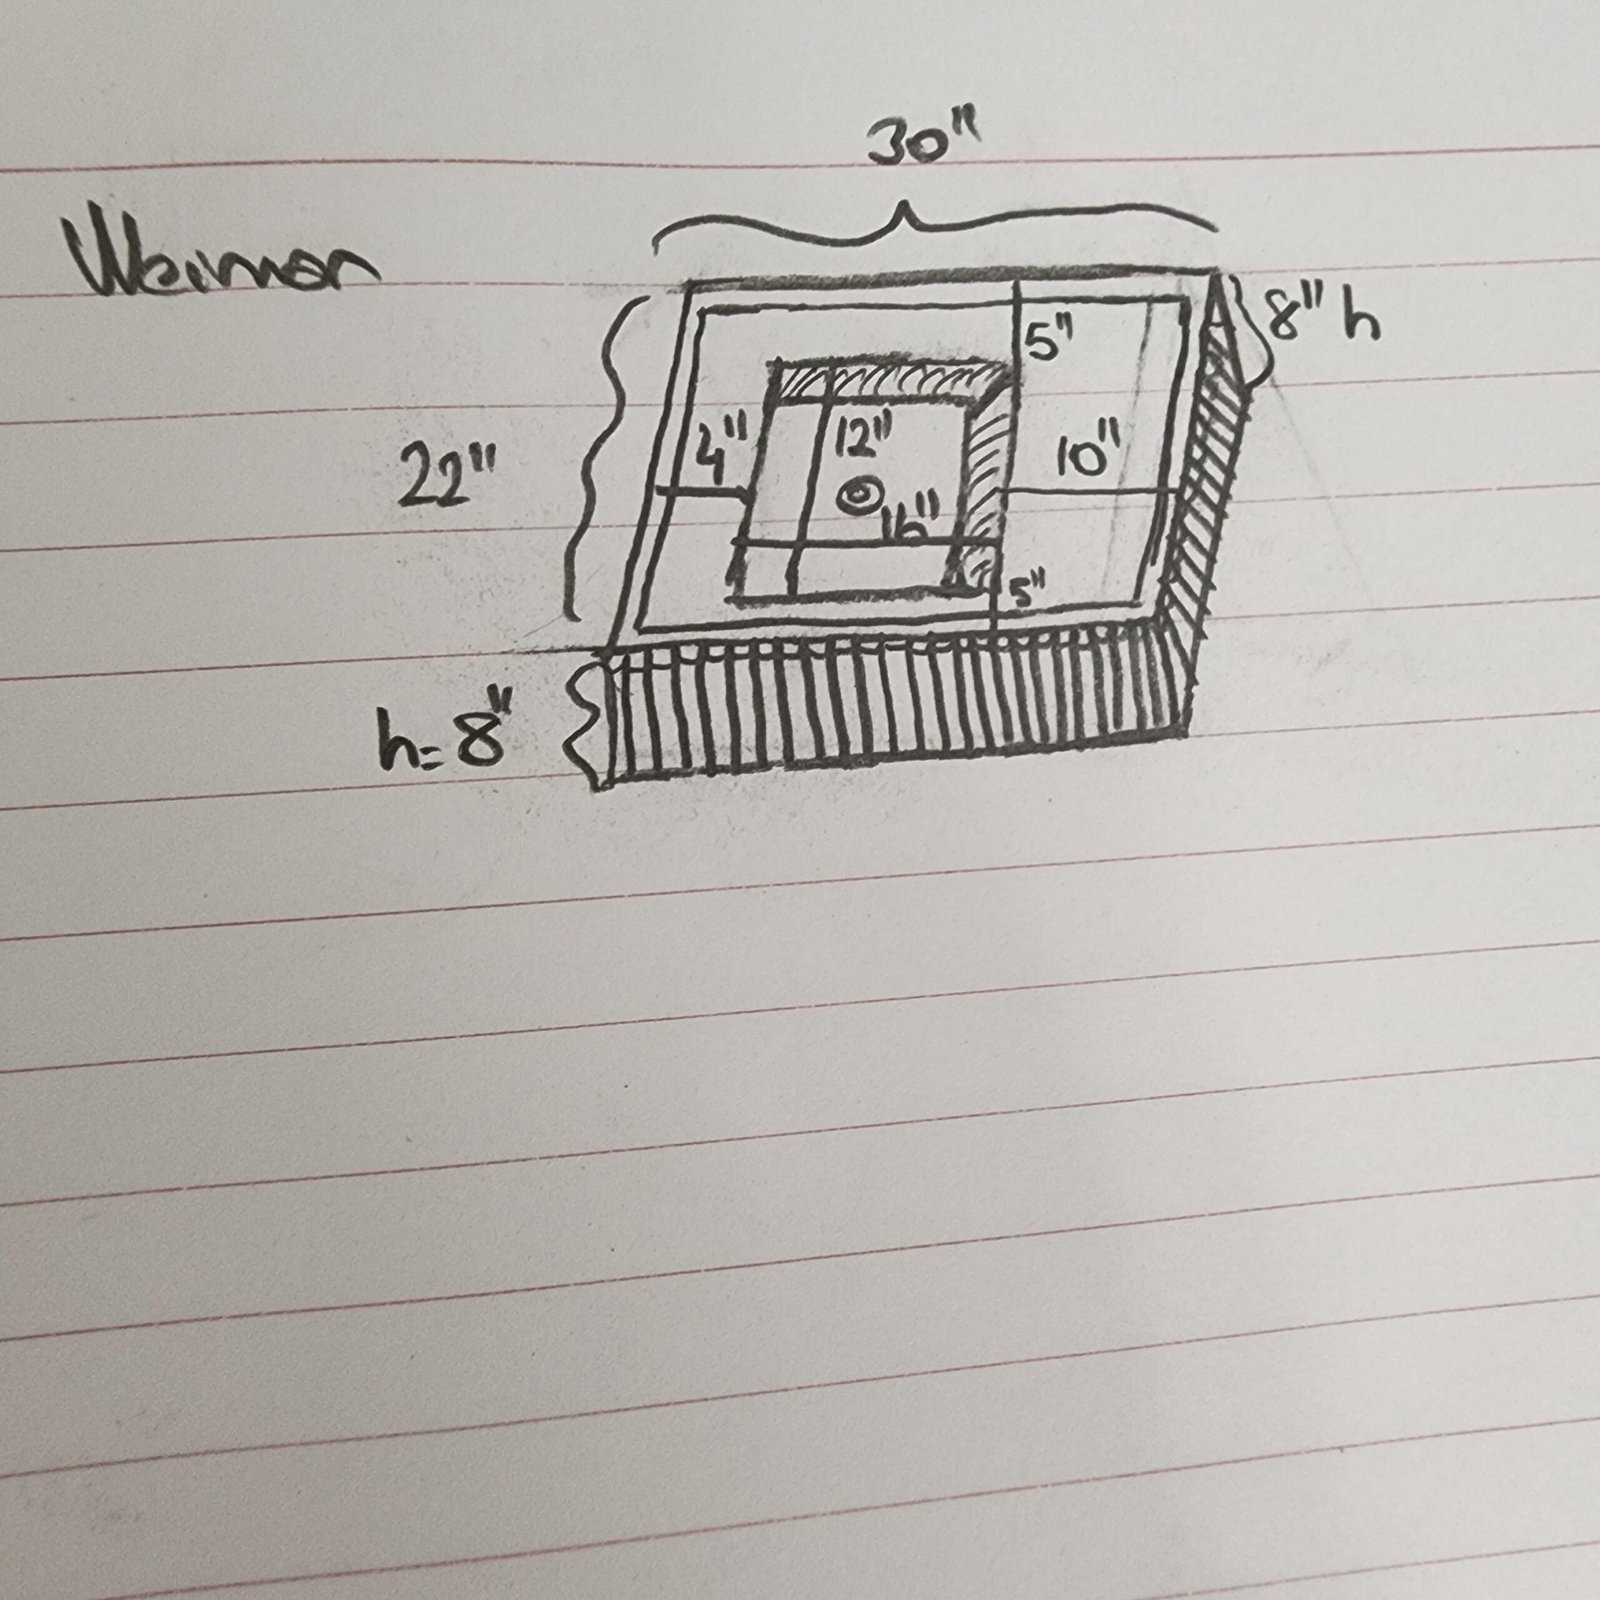 30"
Weimar
8" h
5"
4"
12"
10"
22"
16"
5"
h= 8"